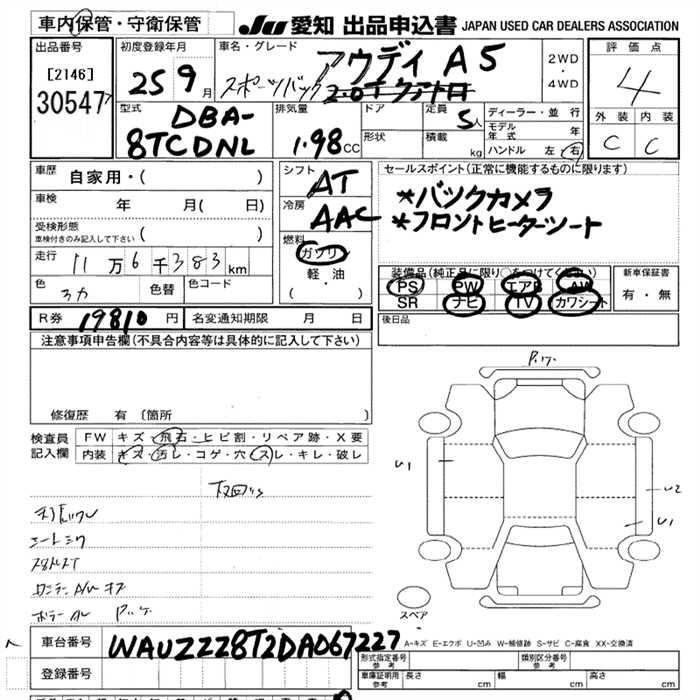 車内保管・守衛保管
JU 愛知 出品申込書 JAPAN USED CAR DEALERS ASSOCIATION
出品番号
[2146]
30547
初度登録年月
25 9 月
車名・グレード
アウディ A5
スポーツバック
2WD
・
4WD
評価点
4
外装 内装
C C
型式
DBA-
8TCDNL
排気量
1.98 CC
ドア
形状
定員
5人
積載
kg
ディーラー・並行
モデル年式 年
ハンドル 左 右
車歴
自家用・( )
車検
年 月( 日)
受検形態
車検付きのみ記入して下さい ( )
走行
11万6千383km
色
色替
色コード
シフト
AT
冷房
AAC
燃料
ガソリン
軽・油
( ・ )
セールスポイント(正常に機能するものに限ります)
*バックカメラ
*フロントヒーターシート
装備品(純正品に限り○をつけてください)
PS PW エアB AW
SR ナビ TV カワシート
新車保証書
有・無
後日品
R券 19810 円
名変通知期限 月 日
注意事項申告欄(不具合内容等は具体的に記入して下さい)
修復歴 有 〔箇所 〕
検査員
記入欄
FW キズ・飛石・ヒビ割・リペア跡・X要
内装 キズ・汚レ・コゲ・穴・スレ・キレ・破レ
U1
U2
U1
スペア
車台番号
WAUZZZ8T2DA067227
登録番号
A-キズ E-エクボ U-凹み W-補修跡 S-サビ C-腐食 XX-交換済
型式指定番号
参考
類別区分番号
参考
車庫証明用
参考
長さ cm 幅 cm 高さ cm